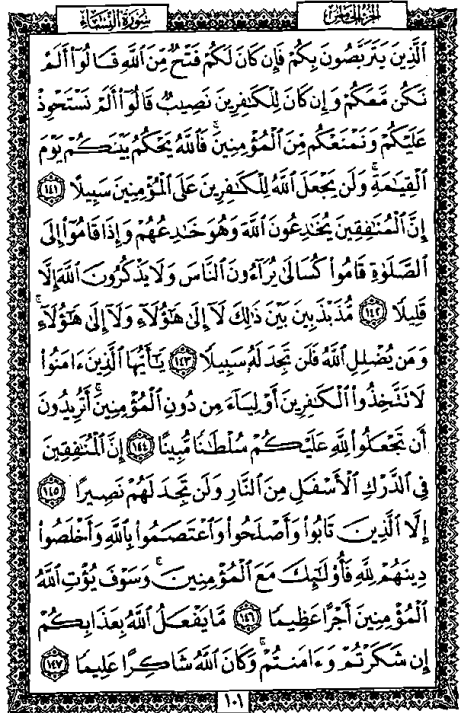 سُورَةُ النِّسَاءِ الجزء الخامس
ٱلَّذِينَ يَتَرَبَّصُونَ بِكُمْ فَإِن كَانَ لَكُمْ فَتْحٌ مِّنَ ٱللَّهِ قَالُوٓا۟ أَلَمْ
نَكُن مَّعَكُمْ وَإِن كَانَ لِلْكَٰفِرِينَ نَصِيبٌ قَالُوٓا۟ أَلَمْ نَسْتَحْوِذْ
عَلَيْكُمْ وَنَمْنَعْكُم مِّنَ ٱلْمُؤْمِنِينَ ۚ فَٱللَّهُ يَحْكُمُ بَيْنَكُمْ يَوْمَ
ٱلْقِيَٰمَةِ ۗ وَلَن يَجْعَلَ ٱللَّهُ لِلْكَٰفِرِينَ عَلَى ٱلْمُؤْمِنِينَ سَبِيلًا ١٤١
إِنَّ ٱلْمُنَٰفِقِينَ يُخَٰدِعُونَ ٱللَّهَ وَهُوَ خَٰدِعُهُمْ وَإِذَا قَامُوٓا۟ إِلَى
ٱلصَّلَوٰةِ قَامُوا۟ كُسَالَىٰ يُرَآءُونَ ٱلنَّاسَ وَلَا يَذْكُرُونَ ٱللَّهَ إِلَّا
قَلِيلًا ١٤٢ مُّذَبْذَبِينَ بَيْنَ ذَٰلِكَ لَآ إِلَىٰ هَٰٓؤُلَآءِ وَلَآ إِلَىٰ هَٰٓؤُلَآءِ ۚ
وَمَن يُضْلِلِ ٱللَّهُ فَلَن تَجِدَ لَهُۥ سَبِيلًا ١٤٣ يَٰٓأَيُّهَا ٱلَّذِينَ ءَامَنُوا۟
لَا تَتَّخِذُوا۟ ٱلْكَٰفِرِينَ أَوْلِيَآءَ مِن دُونِ ٱلْمُؤْمِنِينَ ۚ أَتُرِيدُونَ
أَن تَجْعَلُوا۟ لِلَّهِ عَلَيْكُمْ سُلْطَٰنًا مُّبِينًا ١٤٤ إِنَّ ٱلْمُنَٰفِقِينَ
فِى ٱلدَّرْكِ ٱلْأَسْفَلِ مِنَ ٱلنَّارِ وَلَن تَجِدَ لَهُمْ نَصِيرًا ١٤٥
إِلَّا ٱلَّذِينَ تَابُوا۟ وَأَصْلَحُوا۟ وَٱعْتَصَمُوا۟ بِٱللَّهِ وَأَخْلَصُوا۟
دِينَهُمْ لِلَّهِ فَأُو۟لَٰٓئِكَ مَعَ ٱلْمُؤْمِنِينَ ۖ وَسَوْفَ يُؤْتِ ٱللَّهُ
ٱلْمُؤْمِنِينَ أَجْرًا عَظِيمًا ١٤٦ مَّا يَفْعَلُ ٱللَّهُ بِعَذَابِكُمْ
إِن شَكَرْتُمْ وَءَامَنتُمْ ۚ وَكَانَ ٱللَّهُ شَاكِرًا عَلِيمًا ١٤٧
١٠١